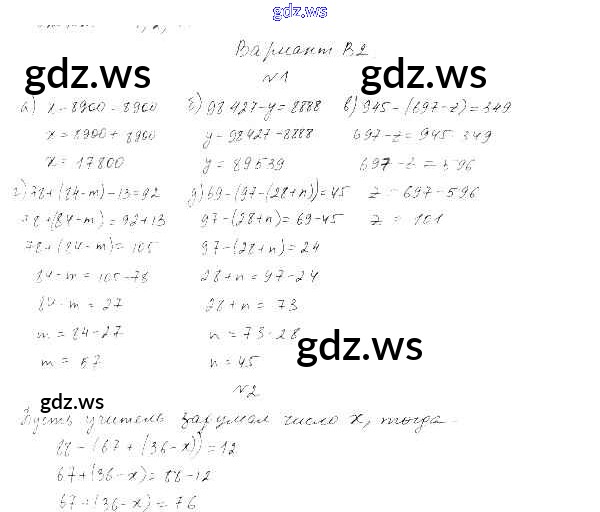 gdz.ws
Вариант В2
gdz.ws
gdz.ws
№1
а) x - 8900 = 8900
x = 8900 + 8900
x = 17800
б) 98 427 - y = 8888
y = 98427 - 8888
y = 89539
в) 945 - (697 - z) = 349
697 - z = 945 - 349
697 - z = 596
z = 697 - 596
z = 101
г) 78 + (84 - m) - 13 = 92
78 + (84 - m) = 92 + 13
78 + (84 - m) = 105
84 - m = 105 - 78
84 - m = 27
m = 84 - 27
m = 57
д) 69 - (97 - (28 + n)) = 45
97 - (28 + n) = 69 - 45
97 - (28 + n) = 24
28 + n = 97 - 24
28 + n = 73
n = 73 - 28
n = 45
gdz.ws
gdz.ws
№2
Пусть учитель задумал число x, тогда
88 - (67 + (36 - x)) = 12
67 + (36 - x) = 88 - 12
67 + (36 - x) = 76